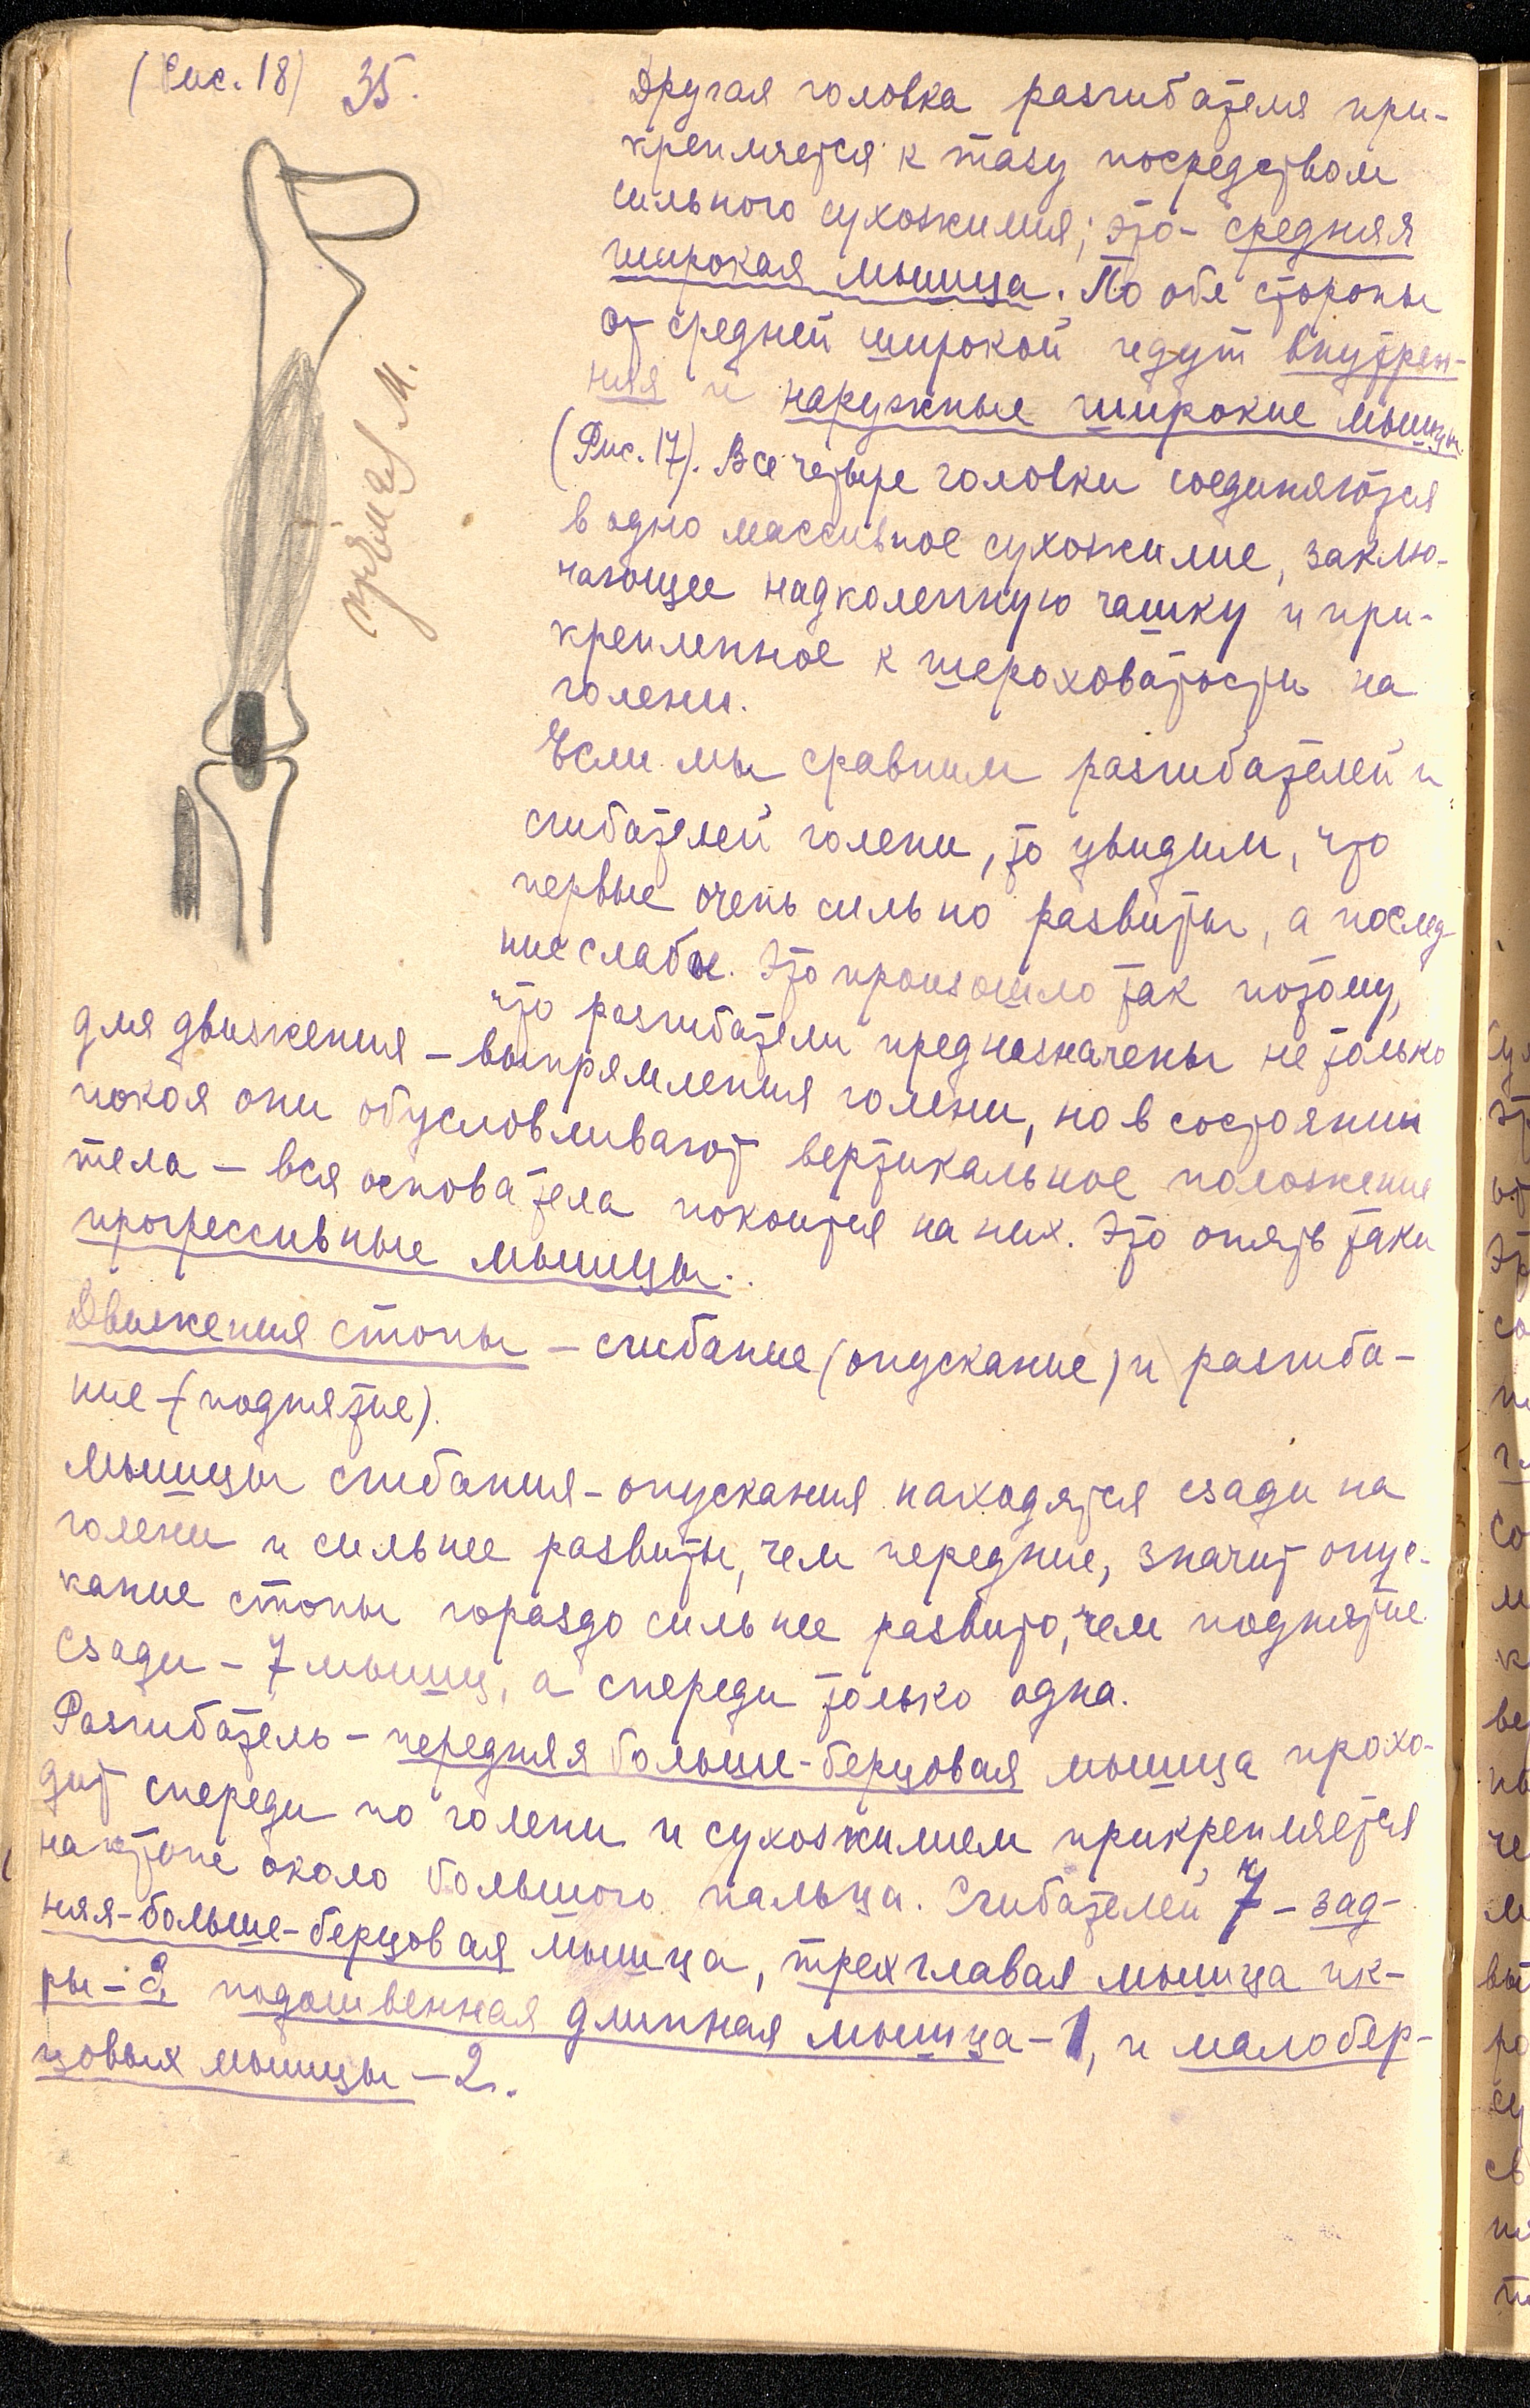 (Рис. 18) 35.
прямая М.
Другая головка разгибателя при-
крепляется к тазу посредством
сильного сухожилия; это - средняя
широкая мышца. По обе стороны
от средней широкой идут внутрен-
няя и наружные широкие мышцы
(Рис. 17). Все четыре головки соединяются
в одно массивное сухожилие, заклю-
чающее надколенную чашку и при-
крепленное к шероховатости на
голени.
Если мы сравним разгибателей и
сгибателей голени, то увидим, что
первые очень сильно развиты, а послед-
ние слабы. Это произошло так потому,
что разгибатели предназначены не только
для движения - выпрямления голени, но в состоянии
покоя они обусловливают вертикальное положение
тела - вся основа тела покоится на них. Это опять таки
прогрессивные мышцы.
Движения стопы - сгибание (опускание) и разгиба-
ние - (поднятие).
Мышцы сгибания - опускания находятся сзади на
голени и сильнее развиты, чем передние, значит опус-
кание стопы гораздо сильнее развито, чем поднятие.
Сзади - 7 мышц, а спереди только одна.
Разгибатель - передняя больше-берцовая мышца прохо-
дит спереди по голени и сухожилием прикрепляется
на стопе около большого пальца. Сгибателей 7 - зад-
няя-больше-берцовая мышца, трехглавая мышца ик-
ры - 3, подошвенная длинная мышца - 1, и малобер-
цовых мышцы - 2.